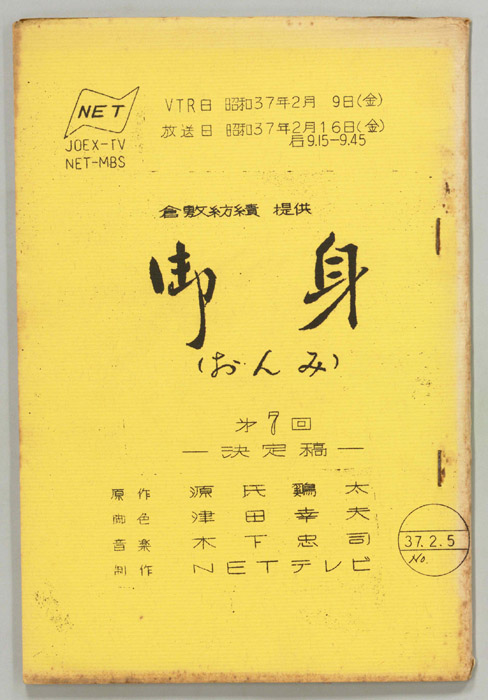 NET
JOEX-TV
NET-MBS
VTR日 昭和37年2月 9日(金)
放送日 昭和37年2月16日(金)
后9.15-9.45
倉敷紡績 提供
御身
(おんみ)
第7回
―決定稿―
原作 源氏鶏太
脚色 津田幸夫
音楽 木下忠司
制作 NETテレビ
37.2.5
No.